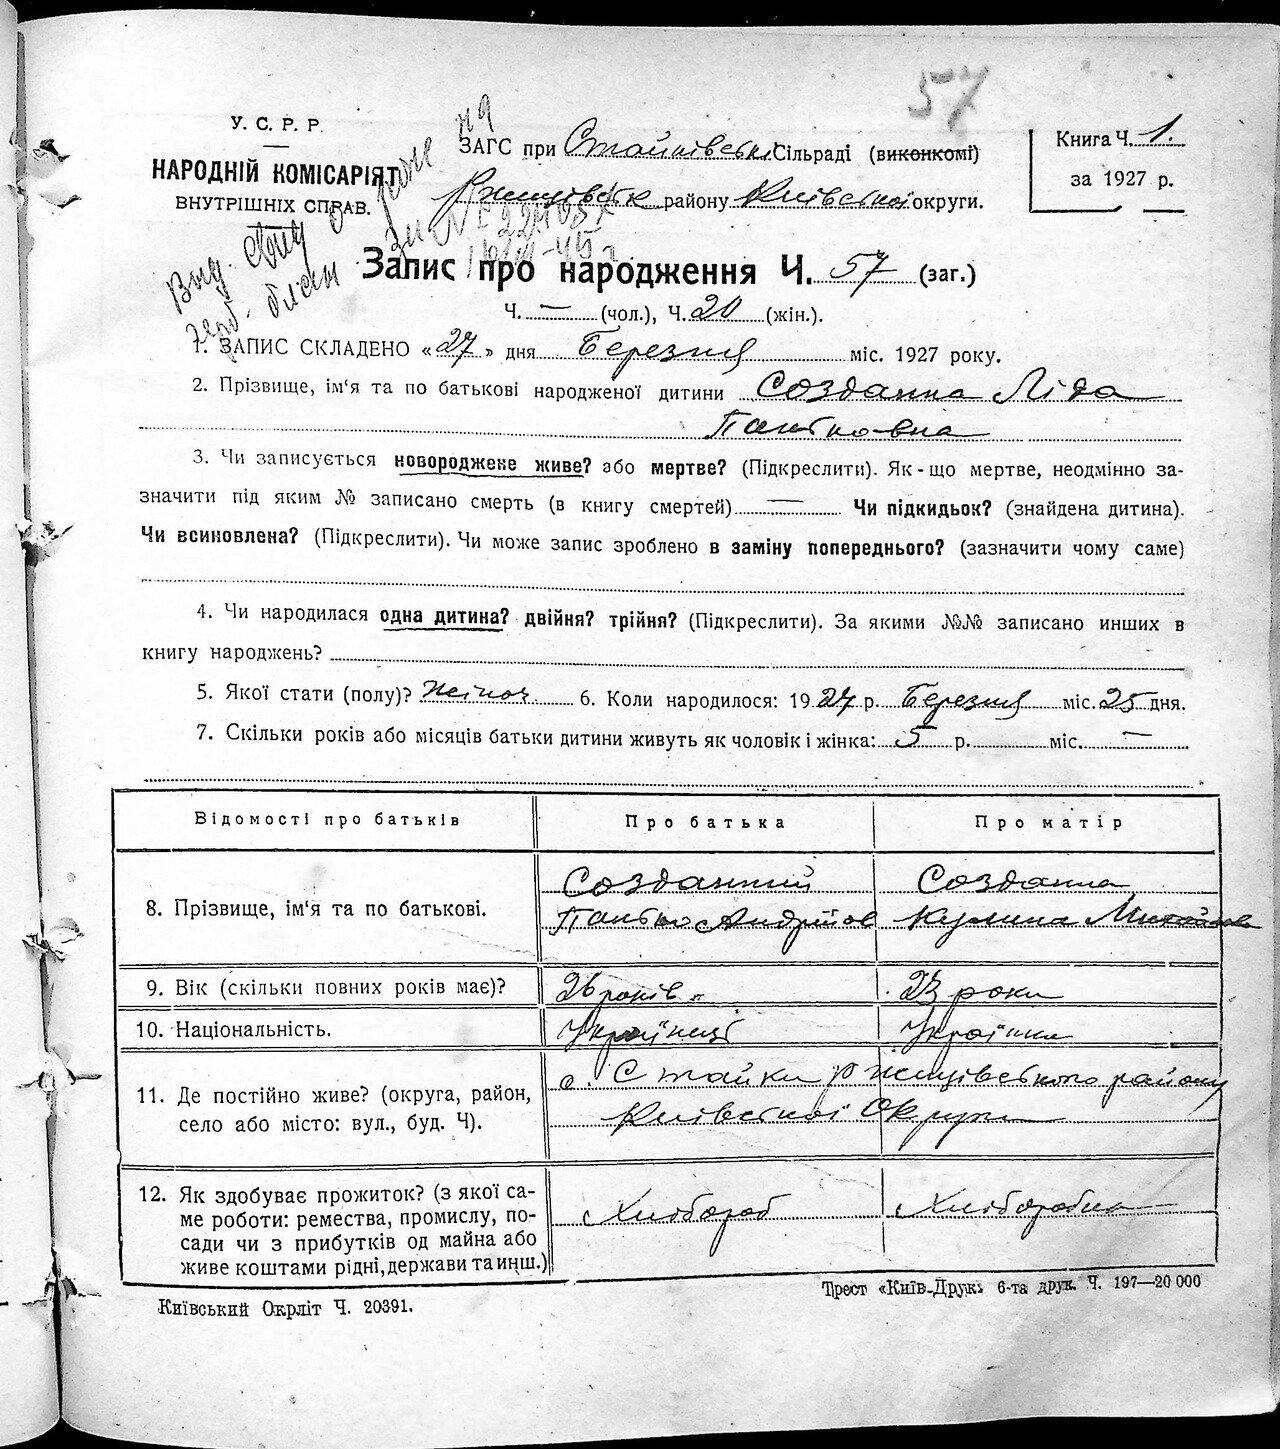 57
У. С. Р. Р.
НАРОДНІЙ КОМІСАРІЯТ
ВНУТРІШНІХ СПРАВ.
ЗАГС при Стайківські Сільраді (виконкомі)
Ржищівськ району Київської округи.
Книга Ч. 1.
за 1927 р.
Запис про народження Ч. 57 (заг.)
Ч. — (чол.), Ч. 20 (жін.).
1. ЗАПИС СКЛАДЕНО «27» дня Березня міс. 1927 року.
2. Прізвище, ім'я та по батькові народженої дитини Созданна Ліда
Паньковна
3. Чи записується новороджене живе? або мертве? (Підкреслити). Як-що мертве, неодмінно за-
значити під яким № записано смерть (в книгу смертей) — Чи підкидьок? (знайдена дитина).
Чи всиновлена? (Підкреслити). Чи може запис зроблено в заміну попереднього? (зазначити чому саме)
4. Чи народилася одна дитина? двійня? трійня? (Підкреслити). За якими №№ записано инших в
книгу народжень?
5. Якої стати (полу)? Жіноч. 6. Коли народилося: 1927 р. Березня міс. 25 дня.
7. Скільки років або місяців батьки дитини живуть як чоловік і жінка: 5 р. міс. —
Відомості про батьків Про батька Про матір
8. Прізвище, ім'я та по батькові.
Созданний Созданна
Панько Андріїов Кулина
9. Вік (скільки повних років має)? 26 років 23 роки
10. Національність. Українці Українка
11. Де постійно живе? (округа, район,
село або місто: вул., буд. Ч).
с. Стайки Ржищівського району
Київської Округи
12. Як здобуває прожиток? (з якої са-
ме роботи: ремества, промислу, по-
сади чи з прибутків од майна або
живе коштами рідні, держави та инш.)
Хлібороб Хліборобка
Київський Окрліт Ч. 20391.
Трест «Київ-Друк» 6-та друк. Ч. 197—20 000